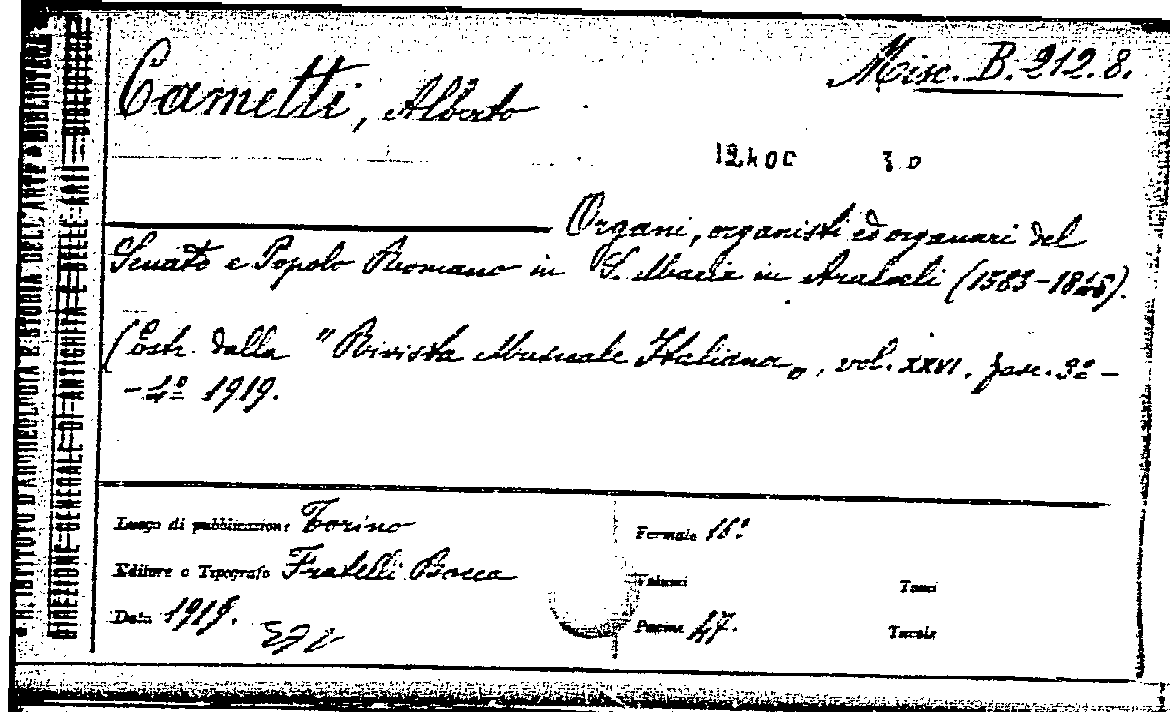 Cametti, Alberto
Misc. B. 212. 8.
Organi, organisti ed organari del
Senato e Popolo Romano in S. Maria in Aracoeli (1583-1848).
(Estr. dalla "Rivista Musicale Italiana„, vol. XXVI, fasc. 3º-
-4º 1919.
Luogo di pubblicazione Torino
Formato 16º
Editore o Tipografo Fratelli Bocca
Volumi
Tomi
Data 1919.
Pagine 47.
Tavole
R. ISTITUTO D'ARCHEOLOGIA E STORIA DELL'ARTE BIBLIOTECA
DIREZIONE GENERALE DI ANTICHITÀ E BELLE ARTI